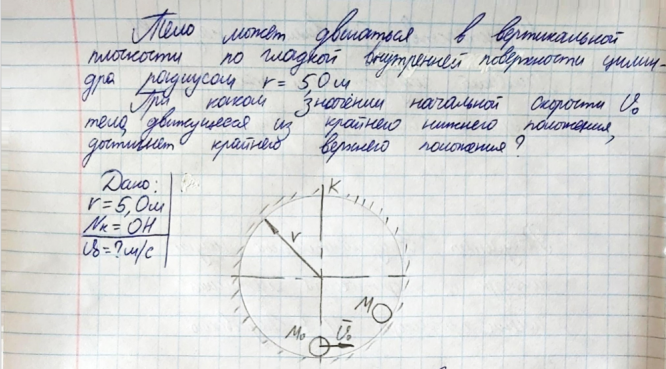 Тело может двигаться в вертикальной
плоскости по гладкой внутренней поверхности цилин-
дра радиусом r = 5,0 м
При каком значении начальной скорости V₀
тело, движущееся из крайнего нижнего положения,
достигнет крайнего верхнего положения?
Дано:
r = 5,0 м
Nк = 0Н
V₀ = ? м/с
K
r
M
M₀
V̄₀